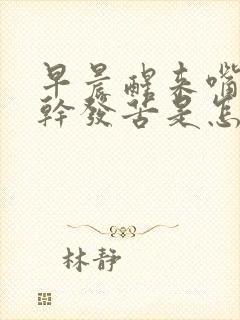 早晨醒来嘴
幹發苦是怎
林静